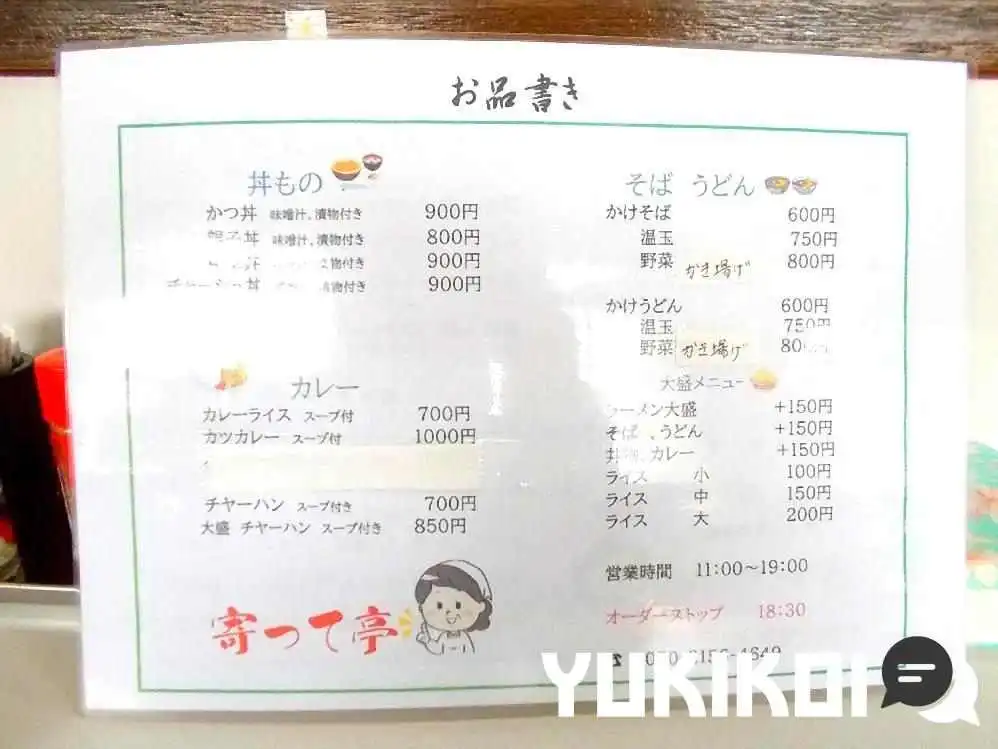 お品書き
丼もの
かつ丼 味噌汁、漬物付き 900円
親子丼 味噌汁、漬物付き 800円
丼 物付き 900円
チャーシュウ丼 漬物付き 900円
カレー
カレーライス スープ付 700円
カツカレー スープ付 1000円
チヤーハン スープ付き 700円
大盛 チヤーハン スープ付き 850円
寄って亭
そば うどん
かけそば 600円
温玉 750円
野菜 かき揚げ 800円
かけうどん 600円
温玉 750円
野菜 かき揚げ 80
大盛メニュー
ラーメン大盛 +150円
そば、うどん +150円
丼物、カレー +150円
ライス 小 100円
ライス 中 150円
ライス 大 200円
営業時間 11:00～19:00
オーダーストップ 18:30
YUKIKOI